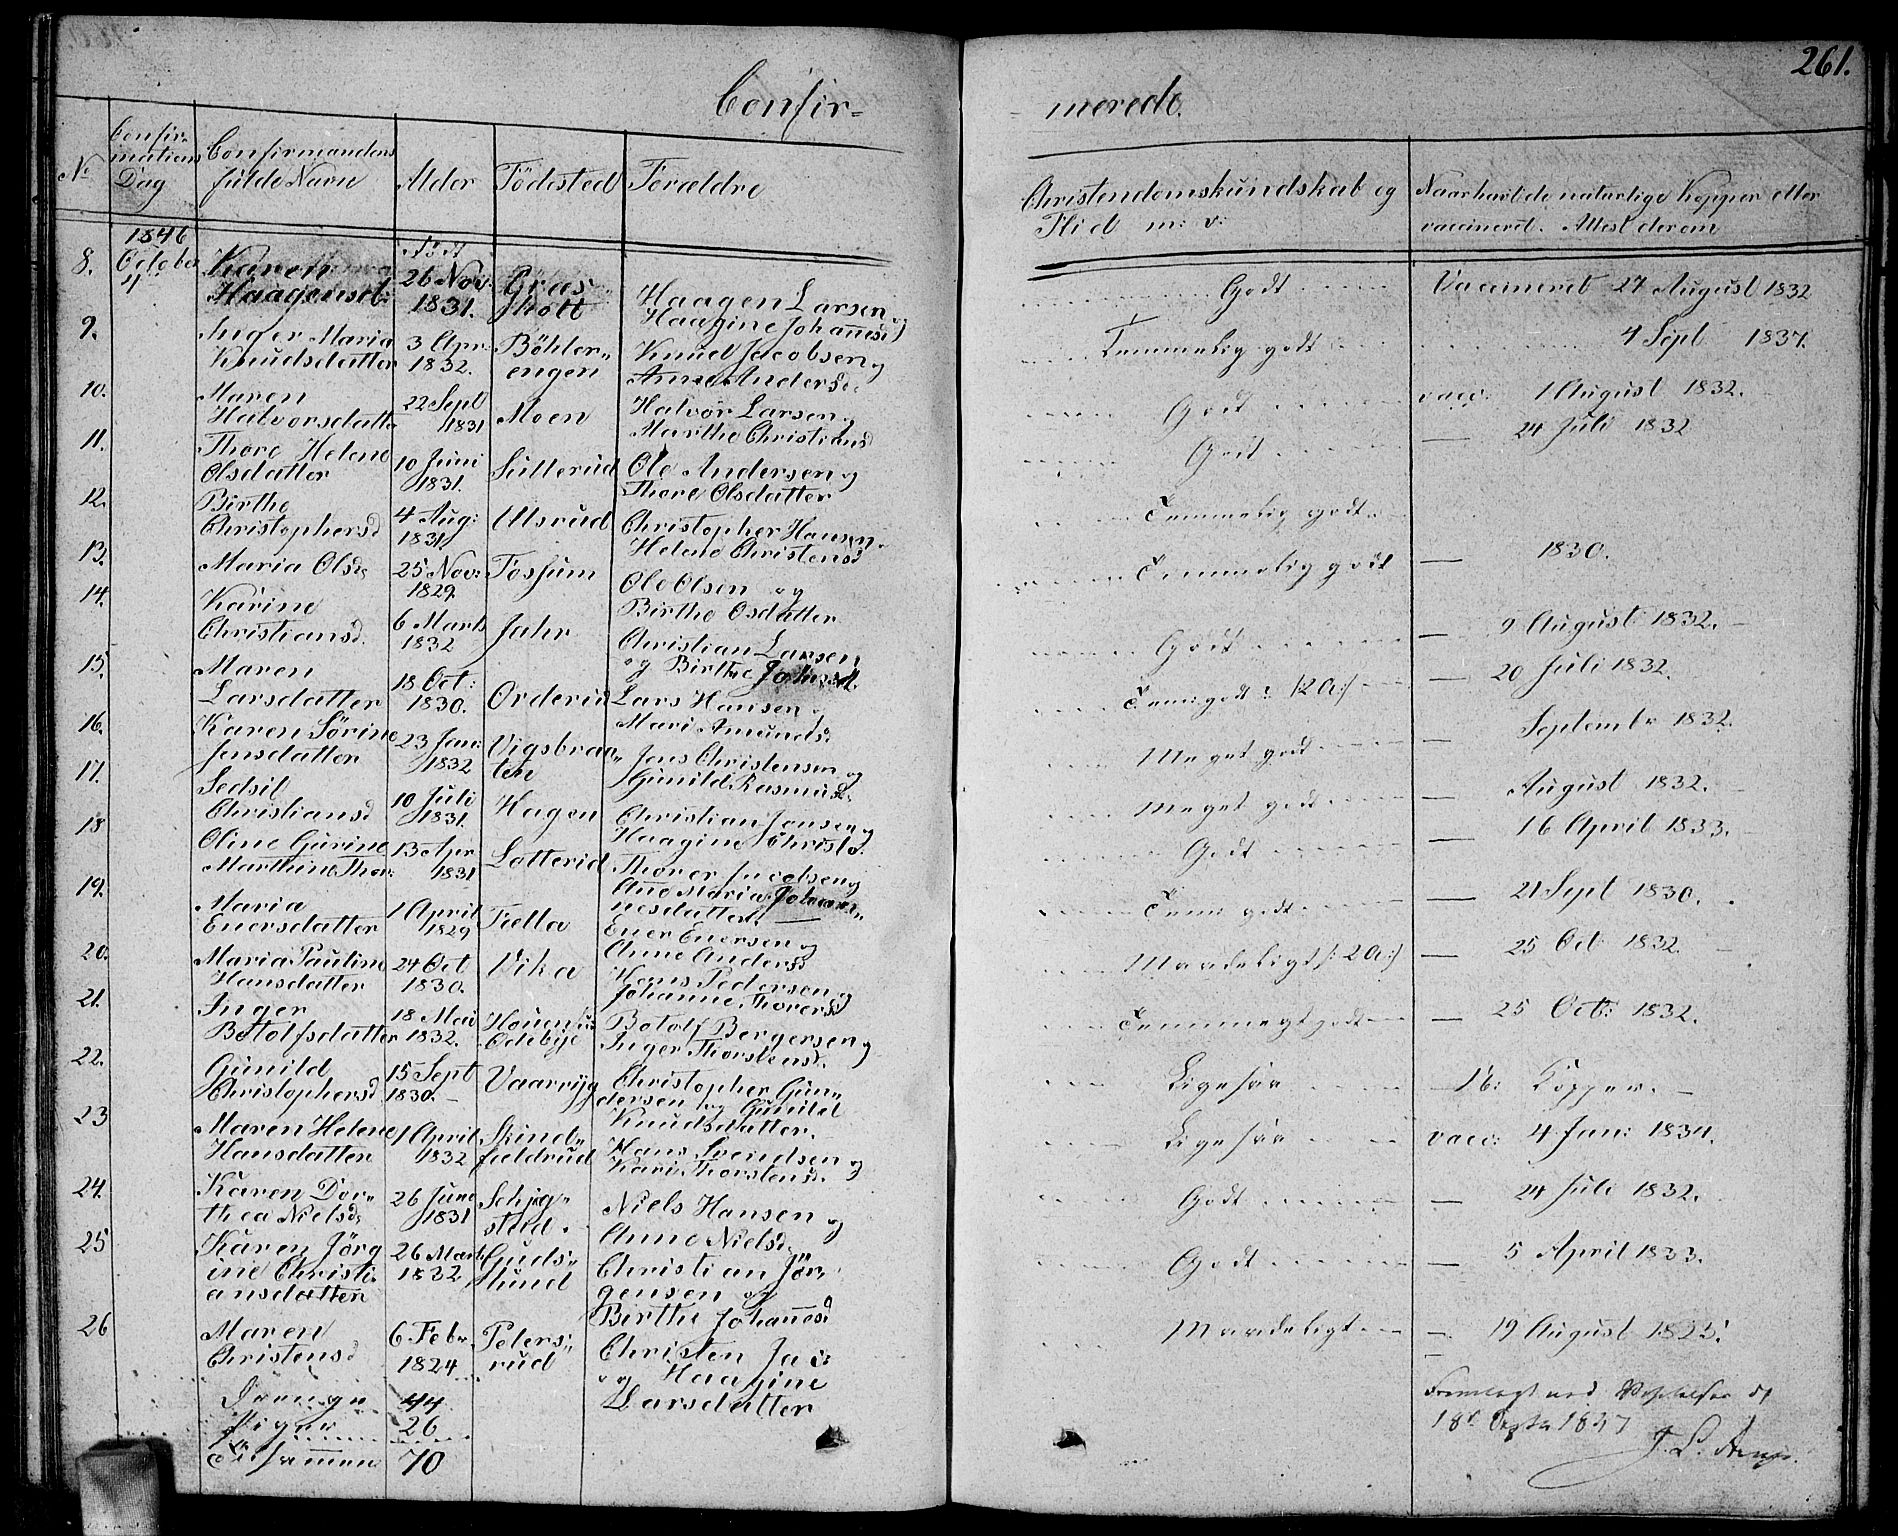 261.
Confir=
=merede.
No
Confir=
mations
Dag
Confirmandens
fulde Navn
Alder
Födested
Forældre
Christendomskundskab og
Flid m: v:
Naar havt de naturlige Kopper eller
vaccineret. Attest derom
1846
October
4
8.
Karen
Haagensd:
född
26 Nov:
1831.
Græs
Haagen Larsen og
Haagine Johannesd
Godt
Vaccineret 27 August 1832
9.
Inger Maria
Knudsdatter
3 Apr:
1832.
Böhler=
engen
Knud Jacobsen og
Anne Andersd.
Temmelig godt
4 Sept 1837.
10.
Maren
Halvorsdatter
22 Sept
1831
Moen
Halvor Larsen og
Marthe Christiansd
Godt
vacc: 1 August 1832.
11.
Thore Helene
Olsdatter
10 Juni
1831.
Sutterud
Ole Andersen og
Thore Olsdatter
Godt
24 Juli 1832
12.
Birthe
Christophersd
4 Aug:
1831.
Ulsrud
Christopher Hansen
Helene Christensd
Temmelig godt.
13.
Maria Olsd
25 Nov:
1829.
Fossum
Ole Olsen og
Birthe Osdatter
Temmelig godt
1830.
14.
Karine
Christiansd.
6 Marts
1832
Jahr
Christian Larsen
og Birthe Johansd.
Godt
9 August 1832.
15.
Maren
Larsdatter
18 Oct:
1830.
Orderud
Lars Hansen og
Mari Amundsd
Tem: godt
20 Juli 1832.
16.
Karen Sörine
Jensdatter
23 Jan:
1832
Vigsbraa=
ten
Jens Christensen og
Gunild Rasmusd.
Meget godt
Septembr 1832.
17.
Sedsil
Christiansd
10 Juli
1831.
Hagen
Christian Jansen og
Haagine Christd.
Meget godt
August 1832.
18
Oline Gurine
Marthine Thor:
13 Apr
1831
Lotterud
Thorer Jacobsen og
Anne Maria Johan=
nesdatter.
Godt
16 April 1833.
19.
Maria
Enersdatter
1 April
1829
Tiella
Ener Enersen og
Anne Andersd
Tem: godt
21 Sept 1830.
20.
Maria Pauline
Hansdatter
24 Oct
1830.
Vika
Hans Pedersen og
Johanne Thorersd
Maadeligt /: 2 a :/
25 Oct 1832.
21.
Inger
Botolfsdatter
18 Mai
1832.
Botolf Bergersen og
Inger Thorstensd.
25 Oct: 1832.
22.
Gunild
Christophersd
15 Sept
1830.
Vaarryg
Christopher Gun=
dersen og Gunild
Knudsdatter.
Ligesaa
Kopper.
23
Maren Helene
Hansdatter
1 April
1832
Skind=
fieldrud
Hans Svendsen og
Kari Thorstensd.
Ligesaa
vacc: 4 Jan: 1834.
24.
Karen Dor=
thea Nielsd
26 Juni
1831
stad.
Niels Hansen og
Anne Nielsd.
Godt
24 Juli 1832.
25
Karen Jörg
ine Christi
ansdatter
26 Mart
1832
Guds=
lund
Christian Jör=
gensen og
Birthe Johannesd
Godt
5 April 1833.
26
Maren
Christensd
6 Febr.
1824.
Peters=
rud
Christen Jac:
og Haagine
Larsdatter
Maadeligt
19 August 1825.
Drenge 44
Piger 26
Tilsammen 70
Fremlagt ved
18d Septr 1847